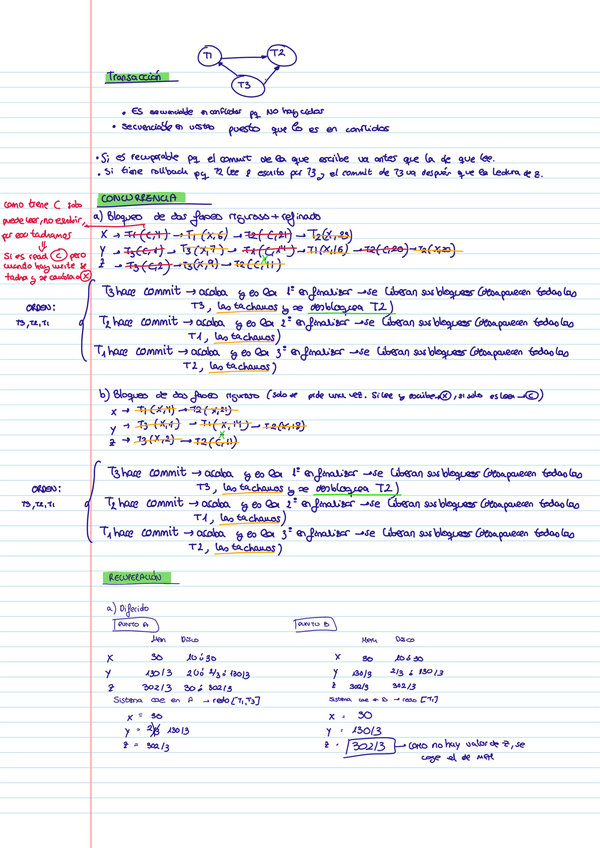 T1 T2
T3
Transacción
• ES secuenciable en conflictos pq NO hay ciclos
• Secuenciable en vistas puesto que lo es en conflictos
• Si es recuperable pq el commit de la que escribe va antes que la de que lee.
• Si tiene rollback pq T2 lee z escrito por T3, y el commit de T3 va después que la lectura de z.
CONCURRENCIA
como tiene C solo
puede leer, no escribir,
por eso tachamos
Si es read C pero
cuando hay write se
tacha y se cambia a X
a) Bloqueo de dos fases riguroso + refinado
X → T1(C,4) → T1(X,6) → T2(C,21) → T2(X,23)
Y → T3(C,1) → T3(X,7) → T1(C,14) → T1(X,16) → T2(C,20) → T2(X,20)
Z → T3(C,2) → T3(X,9) → T2(C,11)
ORDEN:
T3, T2, T1
T3 hace commit → acaba y es la 1ª en finalizar → se liberan sus bloqueos (donde aparecen todas las
T3, las tachamos y se desbloquea T2)
T2 hace commit → acaba y es la 2ª en finalizar → se liberan sus bloqueos (donde aparecen todas las
T1, las tachamos)
T1 hace commit → acaba y es la 3ª en finalizar → se liberan sus bloqueos (donde aparecen todas las
T2, las tachamos)
b) Bloqueo de dos fases riguroso (solo se pide una vez. Si lee y escribe → X, si solo es leer → C)
X → T1(X,4) → T2(X,21)
Y → T3(X,1) → T1(X,14) → T2(X,18)
Z → T3(X,2) → T2(C,11)
ORDEN:
T3, T2, T1
T3 hace commit → acaba y es la 1ª en finalizar → se liberan sus bloqueos (donde aparecen todas las
T3, las tachamos y se desbloquea T2)
T2 hace commit → acaba y es la 2ª en finalizar → se liberan sus bloqueos (donde aparecen todas las
T1, las tachamos)
T1 hace commit → acaba y es la 3ª en finalizar → se liberan sus bloqueos (donde aparecen todas las
T2, las tachamos)
RECUPERACIÓN
a) Diferido
PUNTO A PUNTO B
Mem Disco Mem Disco
X 30 10 ó 30 X 30 10 ó 30
Y 130/3 20 ó 2/3 ó 130/3 Y 130/3 2/3 ó 130/3
Z 302/3 30 ó 302/3 Z 302/3 302/3
Sistema cae en A → redo [T1,T3] Sistema cae en B → redo [T1]
X = 30 X = 30
Y = 130/3 Y = 130/3
Z = 302/3 Z = 302/3 → como no hay valor de z, se
coge el de MEM